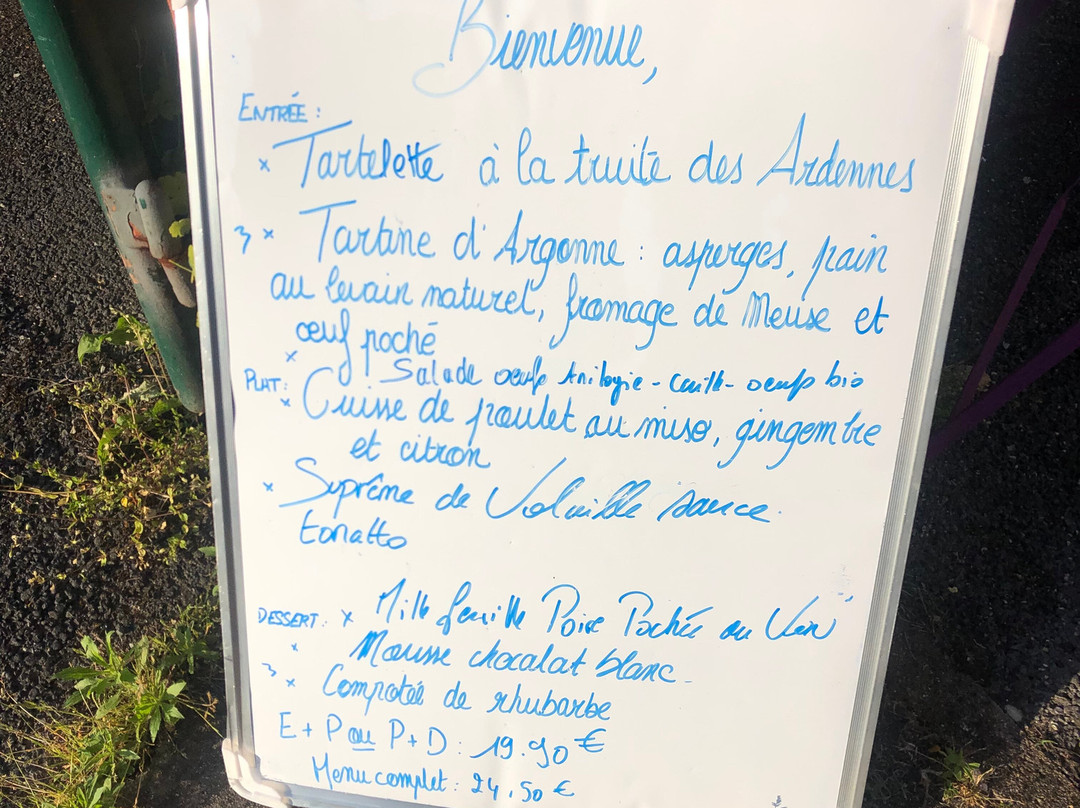 Bienvenue,
ENTRÉE :
x Tartelette à la truite des Ardennes
3 x Tartine d'Argonne : asperges, pain
au levain naturel, fromage de Meuse et
œuf poché
x Salade oeufs - caille - oeufs bio
PLAT :
x Cuisse de poulet au miso, gingembre
et citron
x Suprême de Volaille sauce
tonatto
DESSERT : x Mille feuille Poire Pochée au Vin
x Mousse chocolat blanc
3 x Compotée de rhubarbe
E + P ou P + D : 19.90 €
Menu complet : 24,50 €